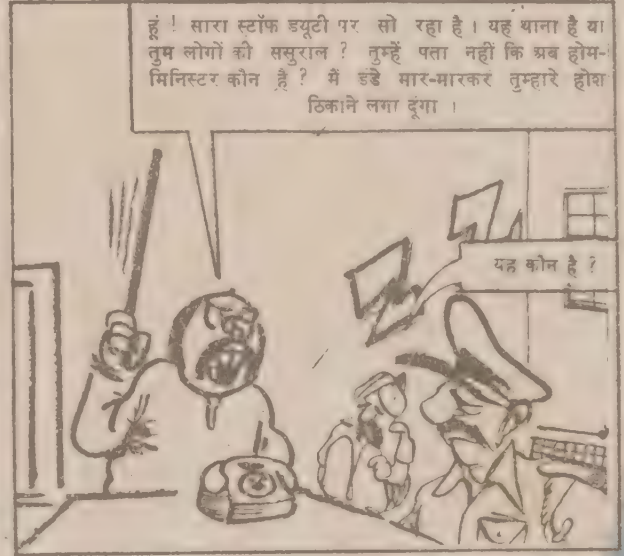 हूं ! सारा स्टॉफ डयूटी पर सो रहा है । यह थाना है या
तुम लोगों की ससुराल ? तुम्हें पता नहीं कि अब होम-
मिनिस्टर कौन है ? मैं डंडे मार-मारकर तुम्हारे होश
ठिकाने लगा दूंगा ।
यह कौन है ?